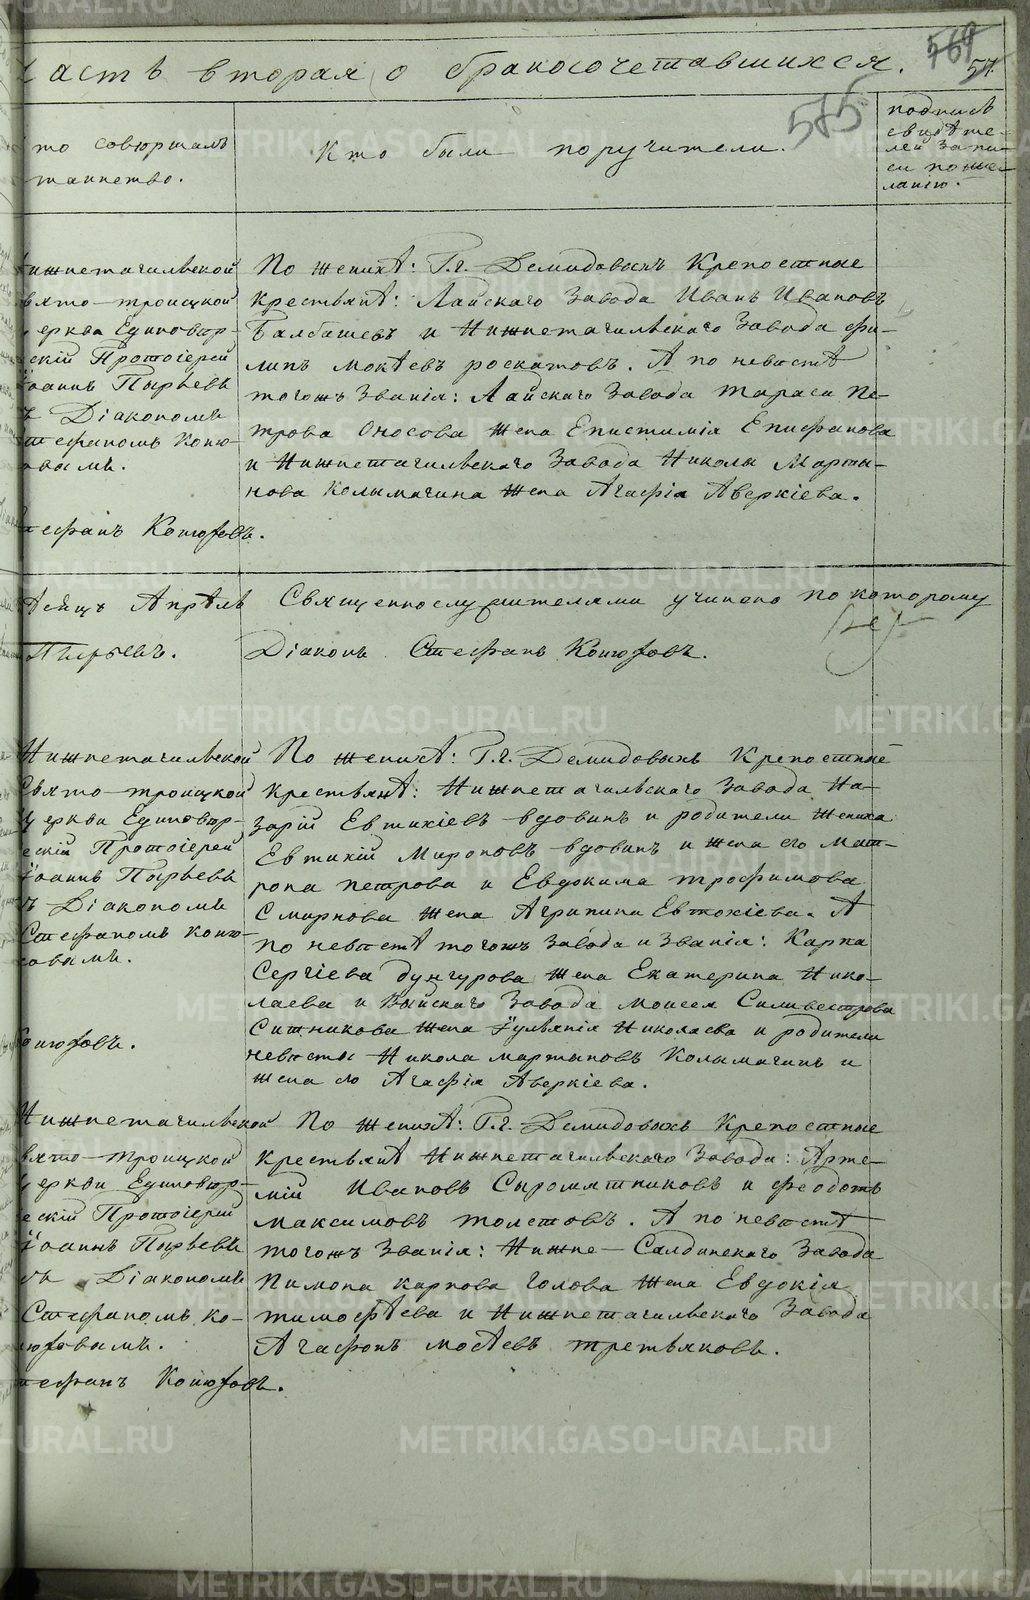 часть вторая о бракосочетавшихся.
569
57.
575
то совершалъ
таинство.
Кто были поручители.
подпись
свидѣте-
лей запи-
си по же-
ланію.
нижнетагильской
вято-троицкой
церкви Единовѣр-
скій Протоіерей
Іоаннъ Пырьевъ
ъ Діакономъ
Стефаномъ Коню-
овымъ.
По женихѣ: Г.г. Демидовыхъ Крепостные
крестьянѣ: Лайскаго завода Иванъ Ивановъ
Балбашевъ и Нижнетагильскаго завода фи-
липъ мокѣевъ роскатовъ. А по невѣстѣ
тогожъ званія: Лайскаго завода тараса Пе-
трова Оносова жена Епистимія Епифанова
и Нижнетагильскаго завода Николы Марты-
нова Колымагина жена Агафія Аверкіева.
тефанъ Конюховъ.
Апрѣль Священнослужителями учинено по которому
Пырьевъ. Діаконъ Стефанъ Конюховъ.
Нижнетагильской
Свято-троицкой
церкви Единовѣр-
ескій Протоіерей
Іоаннъ Пырьевъ
ъ Діакономъ
Стефаномъ Коню-
овымъ.
По женихѣ: Г.г. Демидовыхъ Крепостные
крестьянѣ: Нижнетагильскаго завода На-
зарій Евтихіевъ вдовинъ и родители жениха
Евтихій Мироновъ вдовинъ и жена его Мат-
рона петрова и Евдокима трофимова
Смирнова жена Агрипина Евтохіева. А
по невѣстѣ тогожъ завода и званія: Карпа
Сергіева дунгурова жена Екатерина Нико-
лаева и Выйскаго завода Моисея Сильвестрова
Ситникова жена Іульянія Николаева и родители
невѣсты Никола мартыновъ Колымагинъ и
жена его Агафія Аверкіева.
Конюховъ.
Нижнетагильской
вято-троицкой
церкви Единовѣр-
ескій Протоіерей
Іоаннъ Пырьевъ
съ Діакономъ
Стефаномъ Ко-
нюховымъ.
По женихѣ: Г.г. Демидовыхъ Крепостные
крестьянѣ Нижнетагильскаго завода: Арте-
мій Ивановъ Сыромятниковъ и Феодотъ
Максимовъ толстовъ. А по невѣстѣ
тогожъ званія: Нижне-Салдинскаго завода
Пимона карпова голова жена Евдокія
тимофѣева и Нижнетагильскаго завода
Агафонъ мосѣевъ третьяковъ.
тефанъ Конюховъ.
METRIKI.GASO-URAL.RU